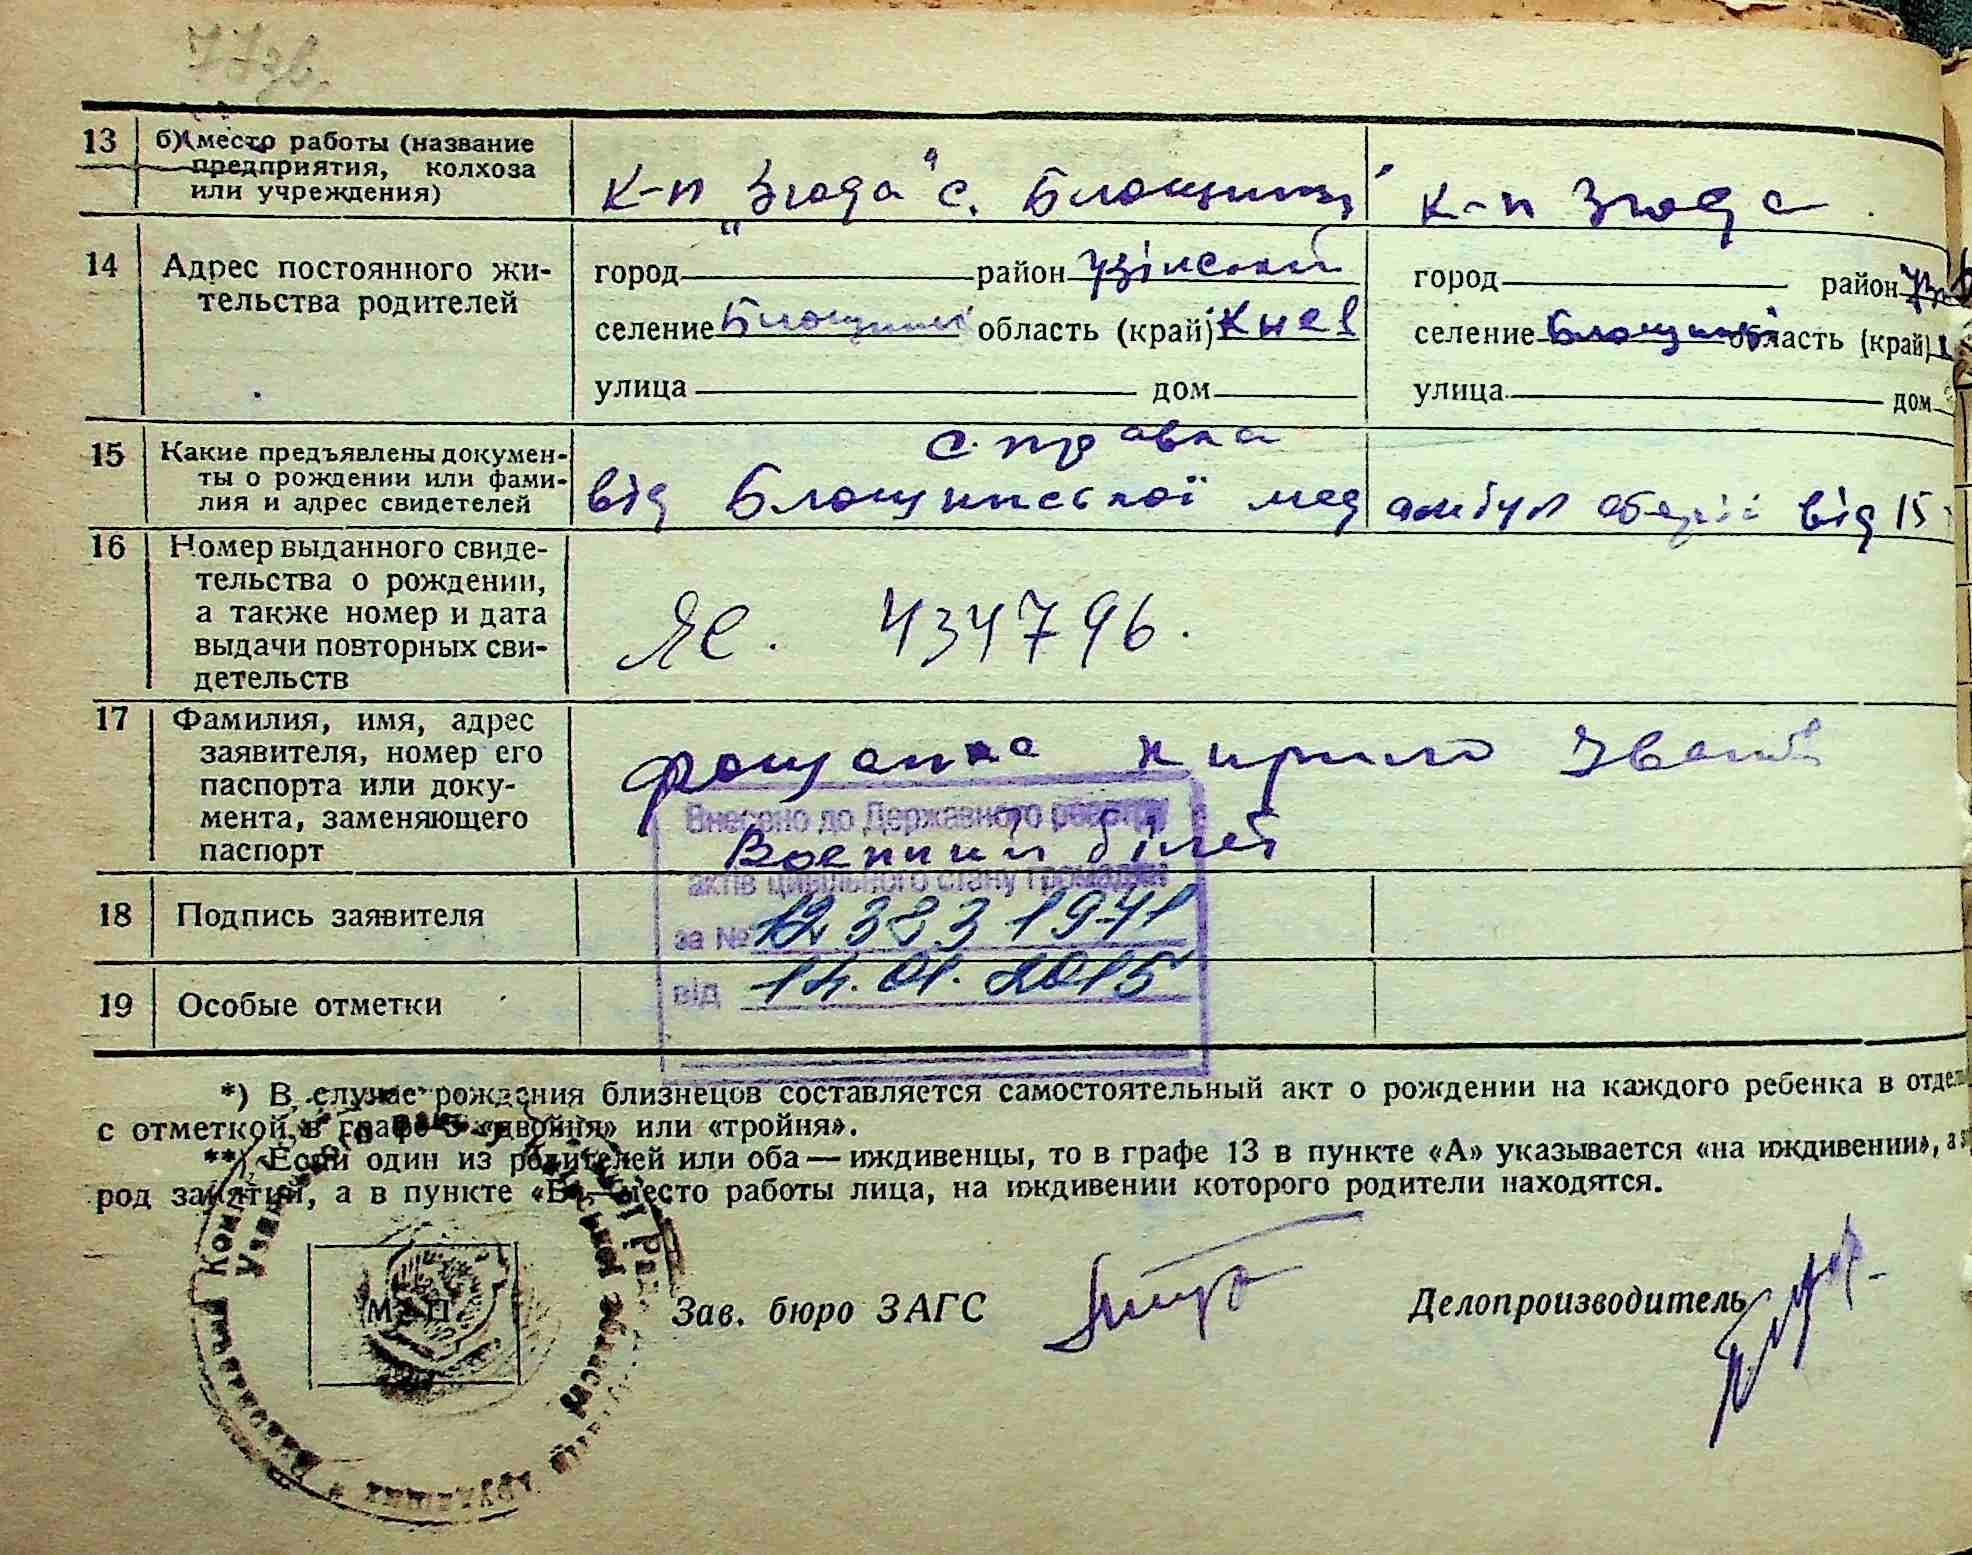 77зв.
13 б) место работы (название предприятия, колхоза или учреждения) к-п "Згода" с. Блощинці к-п Згода
14 Адрес постоянного жительства родителей
город район Узінский город район
селение Блощинці область (край) Киев селение Блощинці область (край)
улица дом улица дом
15 Какие предъявлены документы о рождении или фамилия и адрес свидетелей
справка
від Блощинської мед від 15
16 Номер выданного свидетельства о рождении, а также номер и дата выдачи повторных свидетельств
ЯС. 434796.
17 Фамилия, имя, адрес заявителя, номер его паспорта или документа, заменяющего паспорт
Кирило Іванов
Внесено до Державного реєстру
Военний білет
актів цивільного стану громадян
18 Подпись заявителя
за № 12383 1971
19 Особые отметки
від 14.01.2015
*) В случае рождения близнецов составляется самостоятельный акт о рождении на каждого ребенка в отдел
с отметкой в графе 5 «двойня» или «тройня».
**) Если один из родителей или оба — иждивенцы, то в графе 13 в пункте «А» указывается «на иждивении», а
род занятий, а в пункте «Б» — место работы лица, на иждивении которого родители находятся.
М. П.
Зав. бюро ЗАГС
Делопроизводитель